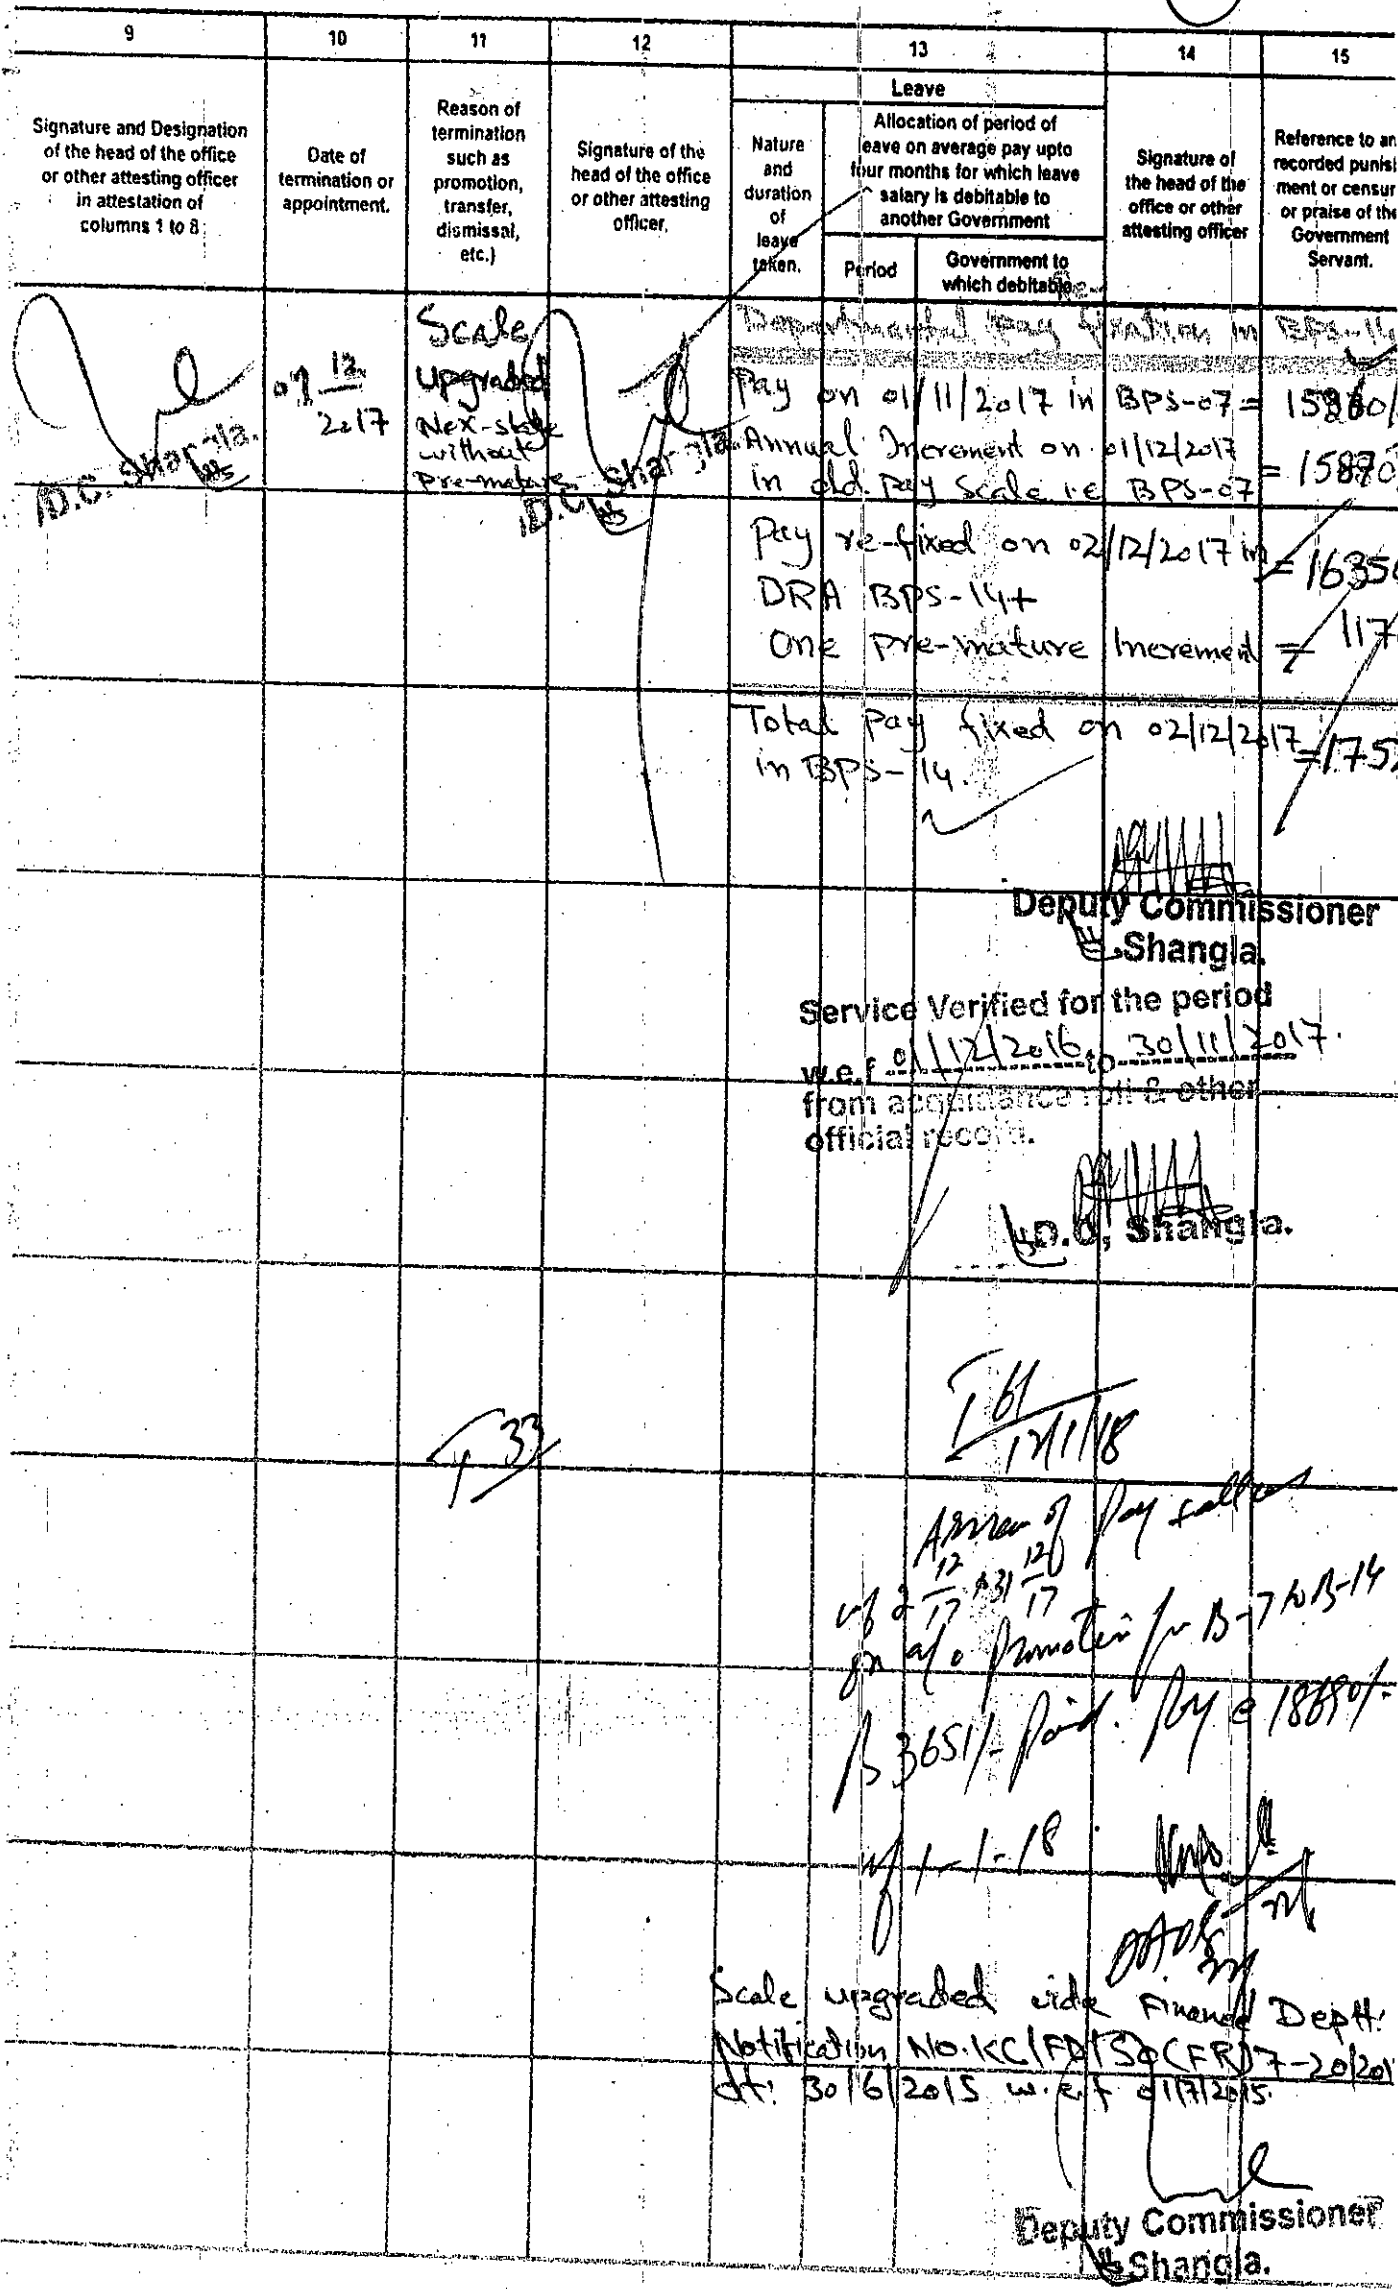 9
10
11
12
13
14
15
Signature and Designation
of the head of the office
or other attesting officer
in attestation of
columns 1 to 8
Date of
termination or
appointment.
Reason of
termination
such as
promotion,
transfer,
dismissal,
etc.)
Signature of the
head of the office
or other attesting
officer.
Leave
Nature
and
duration
of
leave
taken.
Allocation of period of
leave on average pay upto
four months for which leave
salary is debitable to
another Government
Period
Government to
which debitable
Signature of
the head of the
office or other
attesting officer
Reference to an
recorded punish
ment or censur
or praise of the
Government
Servant.
12
2017
Scale
upgraded
Nex-stage
without
pre-mature
D.C. Shangla.
D.C. Shangla.
Departmental Pay fixation in BPS-14
Pay on 01/11/2017 in BPS-07 =
Annual Increment on 01/12/2017
in old pay Scale i.e BPS-07 = 15880
Pay re-fixed on 02/12/2017 in = 1635
DRA BPS-14+
One Pre-mature Increment = 117
Total Pay fixed on 02/12/2017 = 175
in BPS-14.
Deputy Commissioner
Shangla.
Service Verified for the period
w.e.f 01/12/2016 to 30/11/2017.
from acquidance roll & other
official record.
D.C, Shangla.
61
12/1/18
33
of Pay
12 12
17 17
on a/o Promotion B-7 to B-14
3651/- Paid. Pay @ 18690/-
1-1-18
Scale upgraded vide Finance Deptt:
Notification No.KC/FD/SO(FR)7-20/201
dt: 30/6/2015 w.e.f 01/7/2015.
Deputy Commissioner
Shangla.